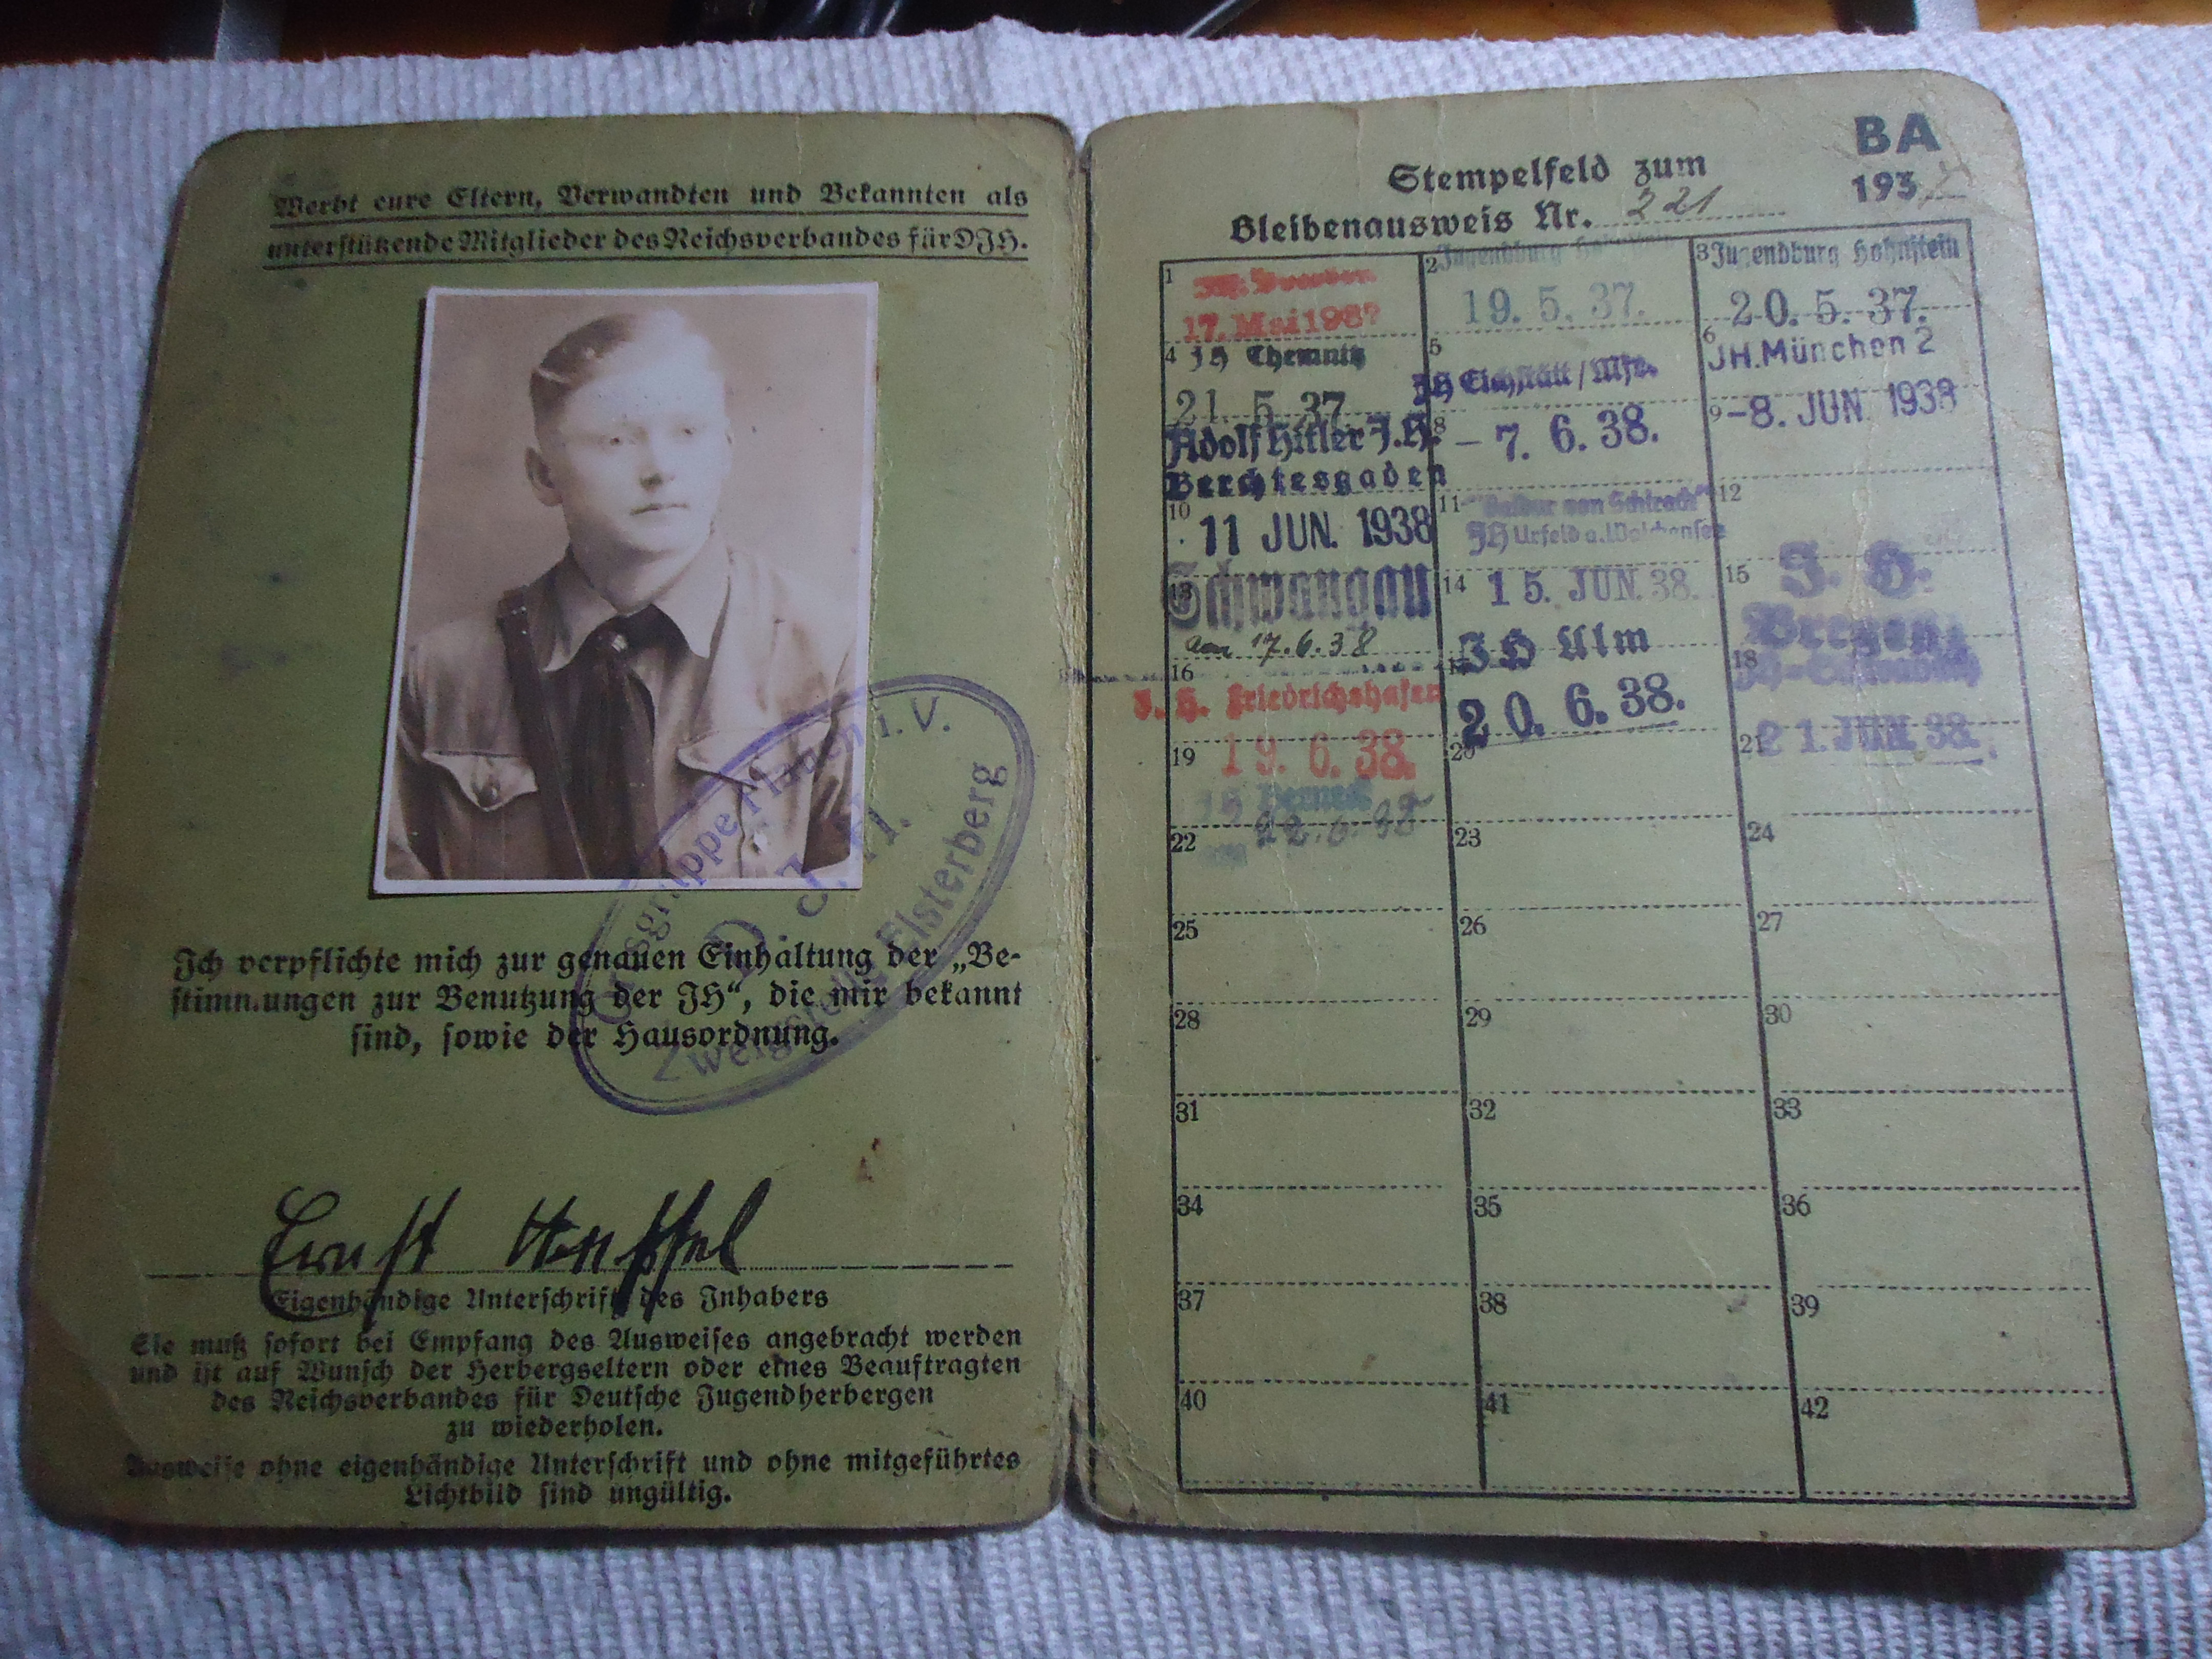 Werbt eure Eltern, Verwandten und Bekannten als
unterstützende Mitglieder des Reichsverbandes für DJH.
Ortsgruppe Plauen i. V.
D. J. H.
Zweigstelle Elsterberg
Ich verpflichte mich zur genauen Einhaltung der „Be-
stimmungen zur Benutzung der JH“, die mir bekannt
sind, sowie der Hausordnung.
Ernst
Eigenhändige Unterschrift des Inhabers
Sie muß sofort bei Empfang des Ausweises angebracht werden
und ist auf Wunsch der Herbergseltern oder eines Beauftragten
des Reichsverbandes für Deutsche Jugendherbergen
zu wiederholen.
Ausweise ohne eigenhändige Unterschrift und ohne mitgeführtes
Lichtbild sind ungültig.
BA
1937
Stempelfeld zum
Bleibenausweis Nr. 221
1 Dresden
17. Mai 1937
2 Jugendburg Hohnstein
19. 5. 37.
3 Jugendburg Hohnstein
20. 5. 37.
4 JH Chemnitz
21. 5. 37.
5 JH Eichstätt / Mfr.
8 – 7. 6. 38.
6 JH. München 2
9 –8. JUN 1938
Adolf Hitler J.H.
Berchtesgaden
10 11 JUN. 1938
11 "Baldur von Schirach"
JH Urfeld a. Walchensee
14 15. JUN. 38.
12
13 Schwangau
am 17.6.38
15 J. H.
Bregenz
18
21 21. JUN. 38.
16
J. H. Friedrichshafen
19 19. 6. 38.
JH Ulm
20. 6. 38.
20
22. 6. 38
22
23
24
25
26
27
28
29
30
31
32
33
34
35
36
37
38
39
40
41
42